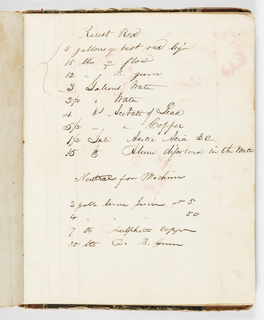 Resist Red
5 gallons of best red liq
15 lbs of flour
12 " B. gum
3 Galions Water
2 1/2 " Water
4 lbs Acetate of Lead
" " Copper
1/2 Gall Acetic Acid
15 lb Alum dissolved in the Water
Neutral for Machine
2 gall 5
4 " " 50
7 lb Sulphate Copper
30 lbs B. Gum